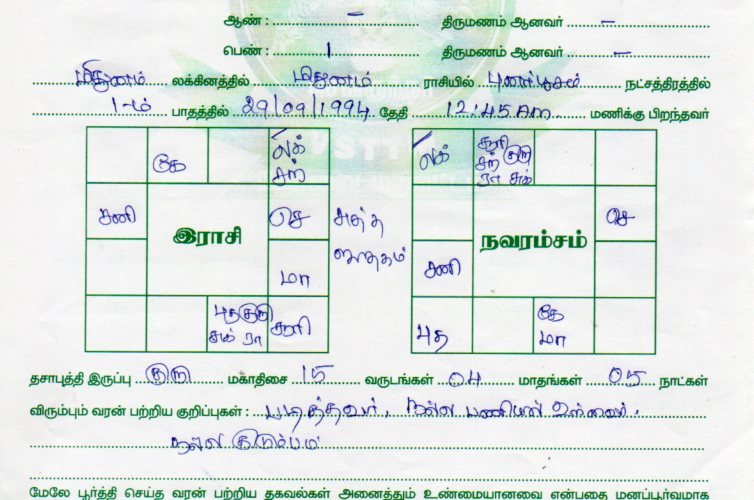 ஆண் : – திருமணம் ஆனவர் –
பெண் : 1 திருமணம் ஆனவர் –
மிதுனம் லக்கினத்தில் மிதுனம் ராசியில் புனர்பூசம் நட்சத்திரத்தில்
1-ம் பாதத்தில் 29/09/1994 தேதி 12:45 Am மணிக்கு பிறந்தவர்
கே
லக்
சந்
சனி
செ
இராசி
மா
புத குரு
சுக் ரா
சூரி
சுத்த
ஜாதகம்
லக்
சூரி
சந் குரு
ரா சுக்
செ
நவரம்சம்
சனி
புத
கே
மா
தசாபுத்தி இருப்பு குரு மகாதிசை 15 வருடங்கள் 04 மாதங்கள் 05 நாட்கள்
விரும்பும் வரன் பற்றிய குறிப்புகள் : படித்தவர், நல்ல பணியில் உள்ளவர்,
நல்ல குடும்பம்
மேலே பூர்த்தி செய்த வரன் பற்றிய தகவல்கள் அனைத்தும் உண்மையானவை என்பதை மனப்பூர்வமாக